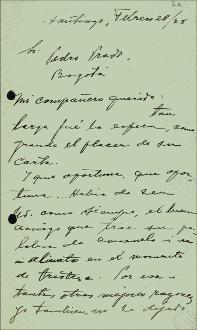 Santiago, Febrero 28/28
Sr.
Pedro Prado.
Bogotá
Mi compañero querido:
tan
larga fué la espera, como
grande el placer de su
carta.
Y que oportuna, que opor-
tuna... Había de ser
Ud. como siempre, el buen
amigo que trae su pa-
labra de consuelo i
aliento en el momento
de tristeza. Por esa i
tantas otras mejores razones
yo tambien no he dejado